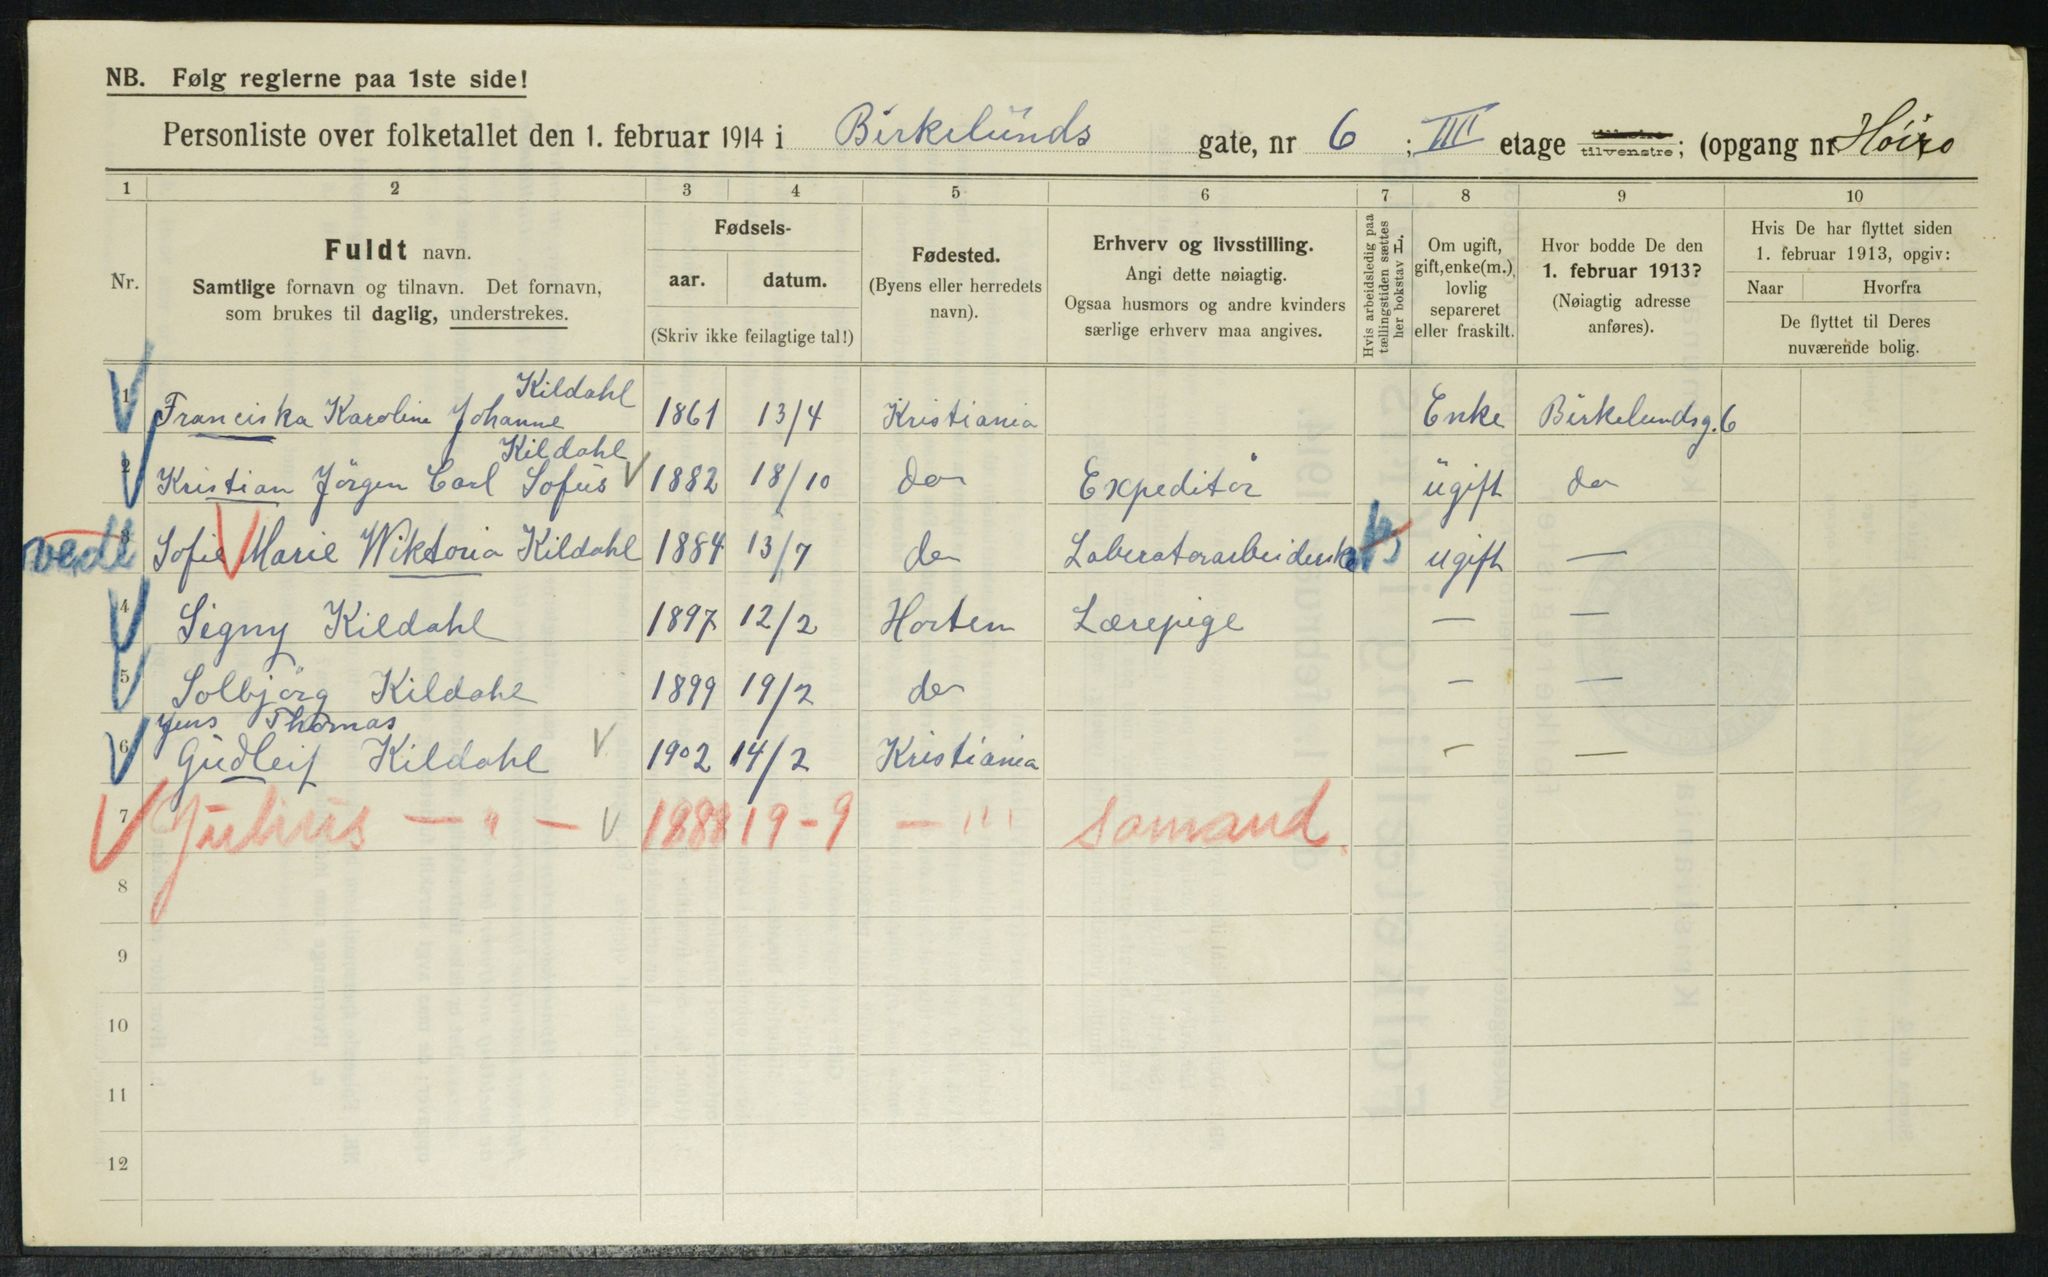 NB. Følg reglerne paa 1ste side!
Personliste over folketallet den 1. februar 1914 i Birkelunds gate, nr 6 ; III etage tilvenstre; (opgang nr
1 2 3 4 5 6 7 8 9 10
Nr.
Fuldt navn.
Samtlige fornavn og tilnavn. Det fornavn,
som brukes til daglig, understrekes.
Fødsels-
aar. datum.
(Skriv ikke feilagtige tal!)
Fødested.
(Byens eller herredets
navn).
Erhverv og livsstilling.
Angi dette nøiagtig.
Ogsaa husmors og andre kvinders
særlige erhverv maa angives.
Hvis arbeidsledig paa
tællingstiden sættes
her bokstav L.
Om ugift,
gift, enke(m.),
lovlig
separeret
eller fraskilt.
Hvor bodde De den
1. februar 1913?
(Nøiagtig adresse
anføres).
Hvis De har flyttet siden
1. februar 1913, opgiv:
Naar Hvorfra
De flyttet til Deres
nuværende bolig.
Kildahl
1 Franciska Karoline Johanne 1861 13/4 Kristiania Enke Birkelundsg. 6
Kildahl
2 Kristian Jörgen Carl Sofus V 1882 18/10 do Expeditör ugift do
vedl 3 Sofie Marie Wiktoria Kildahl 1884 13/7 do Laboratorarbeiderske ugift —
4 Signy Kildahl 1897 12/2 Horten Lærepige — —
5 Solbjörg Kildahl 1899 19/2 do — —
Jens Thomas
6 Gudleif Kildahl V 1902 14/2 Kristiania — —
7 Julius — " — V 1888 19-9 — "' Sømand.
8
9
10
11
12